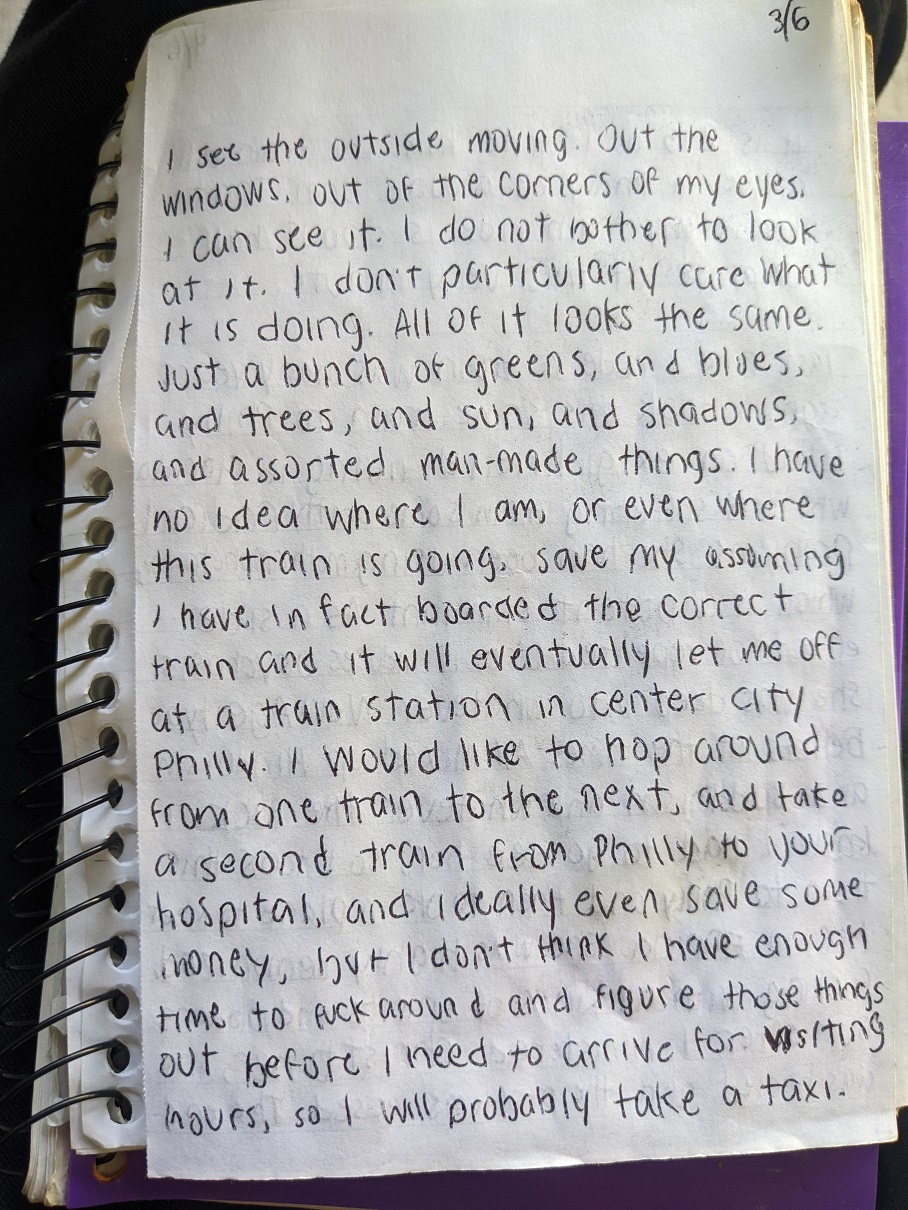 3/6
I see the outside moving. Out the
windows, out of the corners of my eyes.
I can see it. I do not bother to look
at it. I don't particularly care what
it is doing. All of it looks the same.
Just a bunch of greens, and blues,
and trees, and sun, and shadows,
and assorted man-made things. I have
no idea where I am, or even where
this train is going, save my assuming
I have in fact boarded the correct
train and it will eventually let me off
at a train station in center city
Philly. I would like to hop around
from one train to the next, and take
a second train from Philly to your
hospital, and ideally even save some
money, but I don't think I have enough
time to fuck around and figure those things
out before I need to arrive for visiting
hours, so I will probably take a taxi.